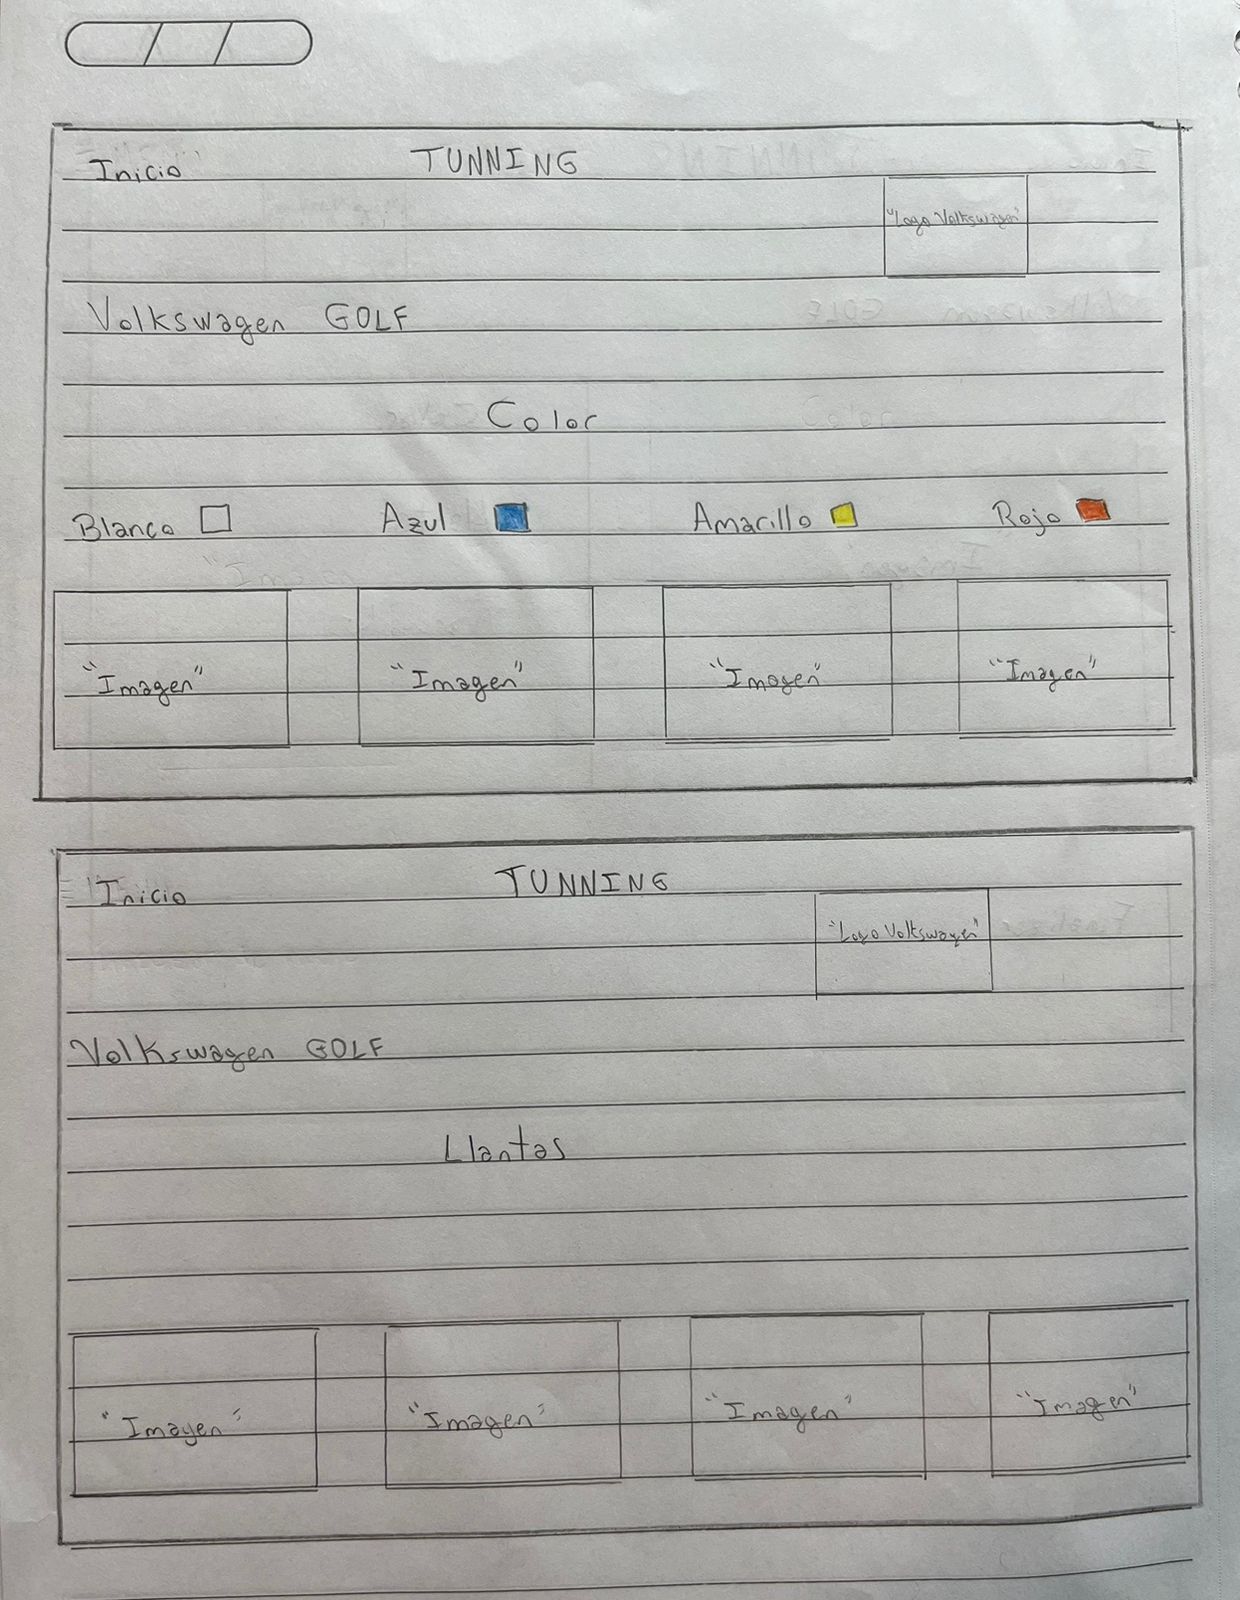 Inicio TUNNING
"Logo Volkswagen"
Volkswagen GOLF
Color
Blanco Azul Amarillo Rojo
"Imagen" "Imagen" "Imagen" "Imagen"
Inicio TUNNING
"Logo Volkswagen"
Volkswagen GOLF
Llantas
"Imagen" "Imagen" "Imagen" "Imagen"